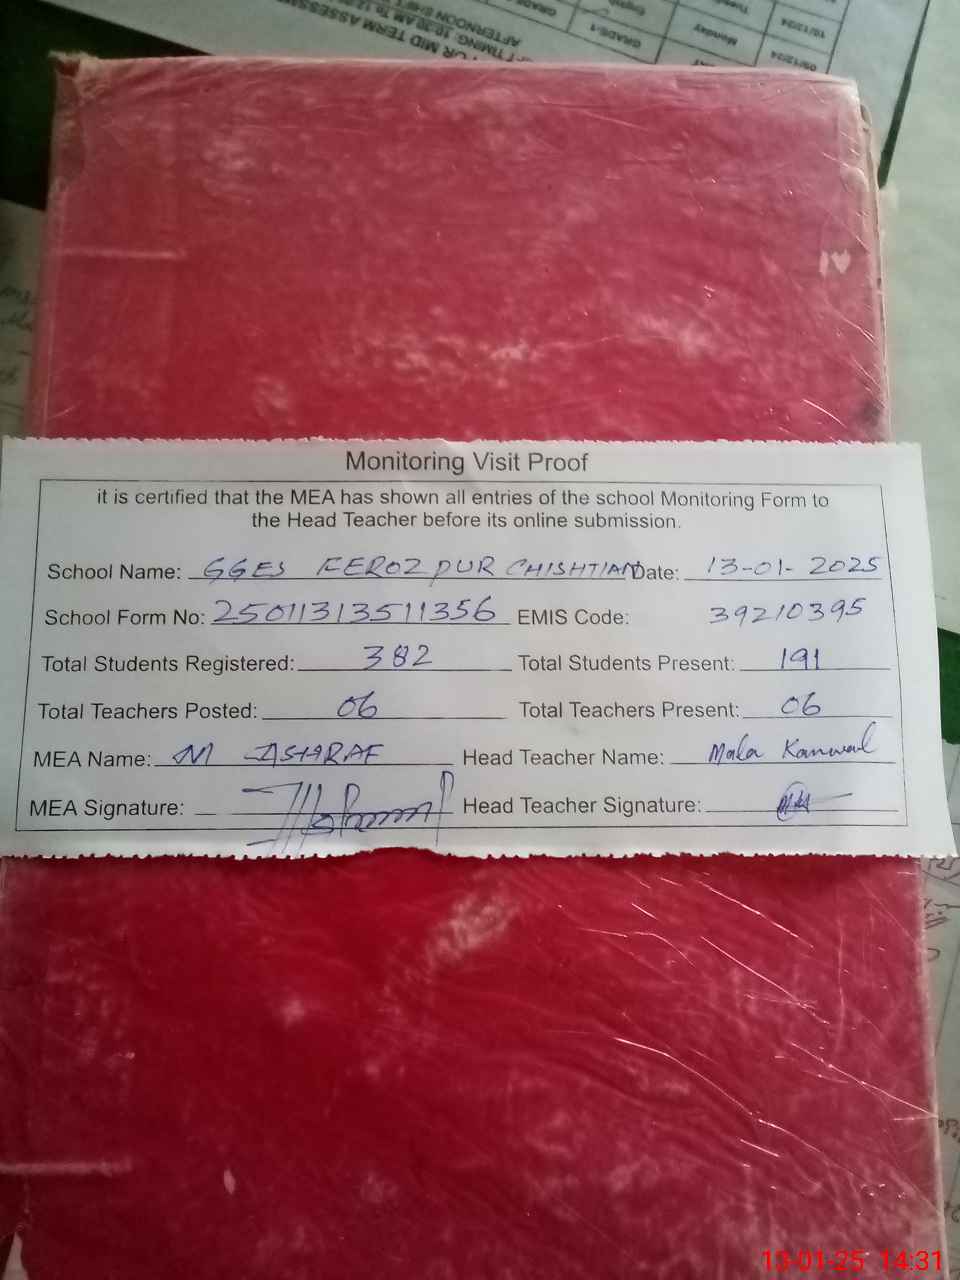 OR MID TERM ASSESSM
TIMING: 10:30 AM To 12:
AFTERNOON SHIFT
GRADE-1
Monday
09/12/24
10/12/24
Monitoring Visit Proof
it is certified that the MEA has shown all entries of the school Monitoring Form to
the Head Teacher before its online submission.
School Name: GGES FEROZPUR CHISHTIAN Date: 13-01-2025
School Form No: 25011313511356 EMIS Code: 39210395
Total Students Registered: 382 Total Students Present: 191
Total Teachers Posted: 06 Total Teachers Present: 06
MEA Name: M ASHRAF Head Teacher Name: Mala Kanwal
MEA Signature: Head Teacher Signature:
13-01-25 14:31